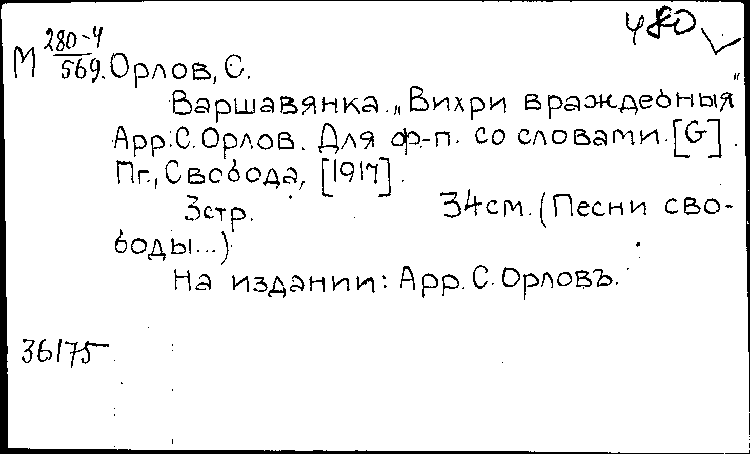 480
М 280-4
569. Орлов, С.
Варшавянка. „Вихри враждебныя"
Арр. С. Орлов. Для ф.-п. со словами. [G].
Пг., Свобода, [1917].
3 стр. 34 см. (Песни сво-
боды...)
На издании: Арр. С. Орловъ.
36175